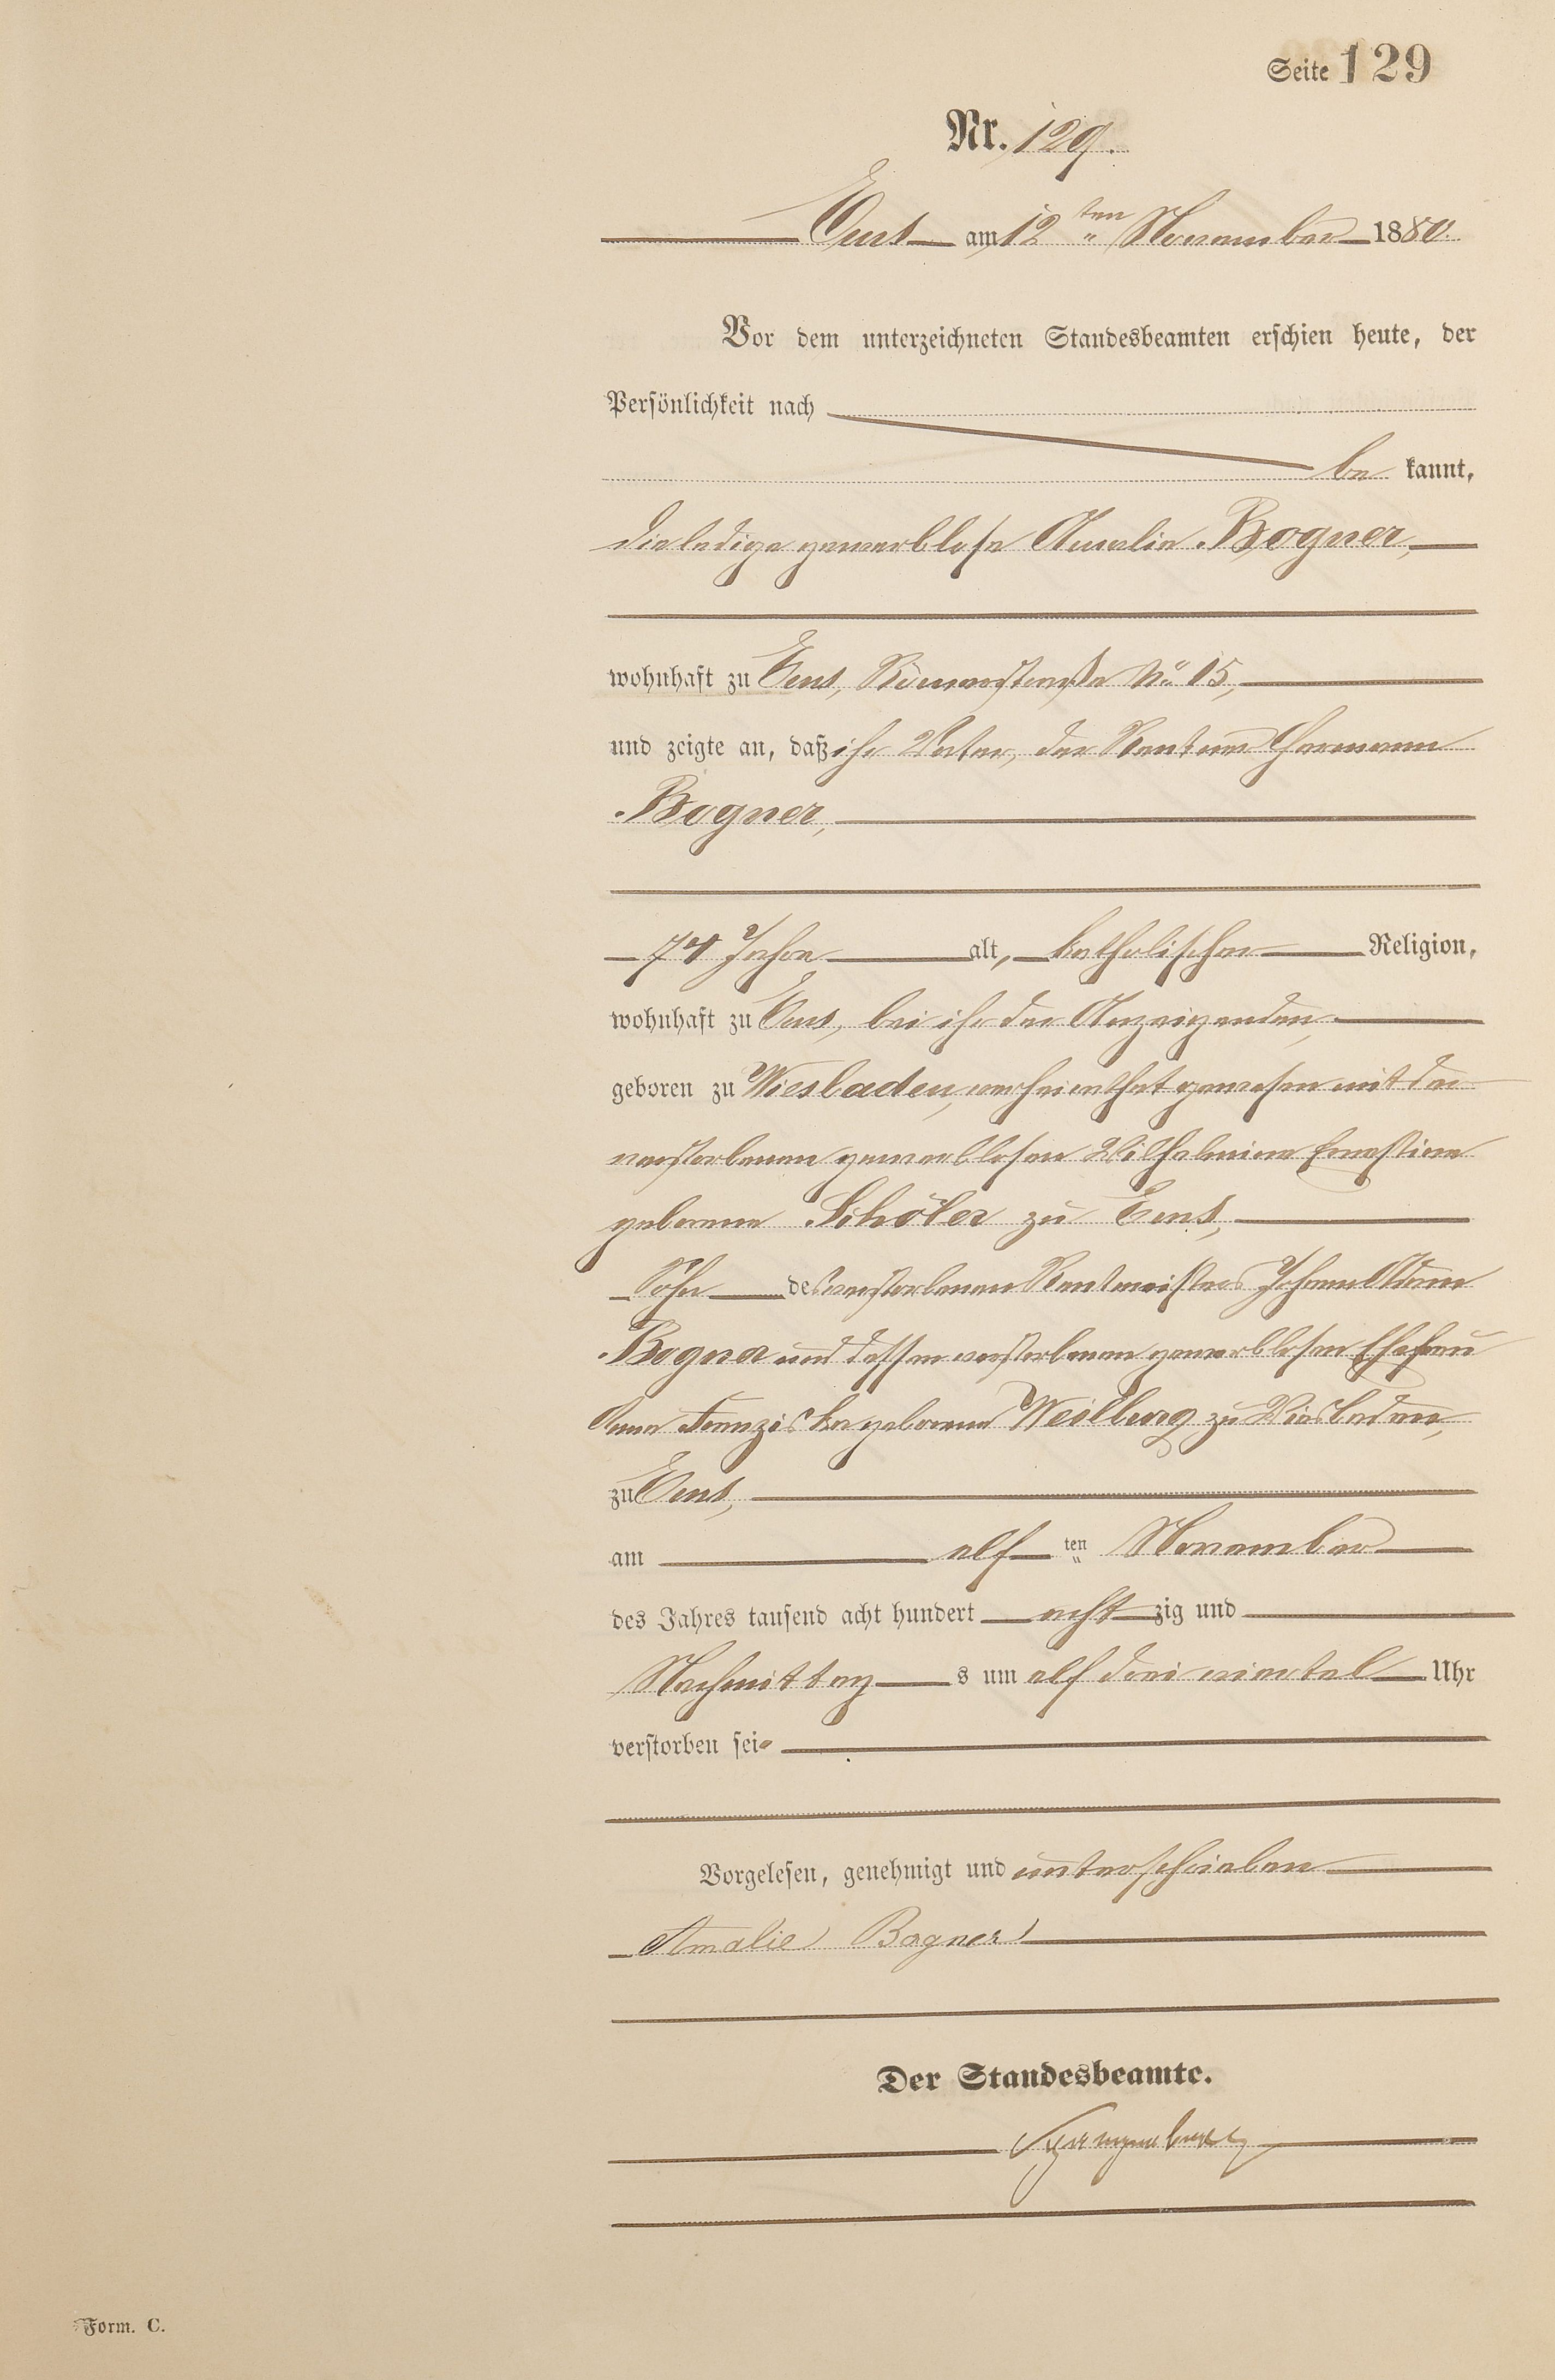 Seite 129
Nr. 129.
Ems am 12ten November 1880.
Vor dem unterzeichneten Standesbeamten erschien heute, der
Persönlichkeit nach
be kannt,
die ledige gewerblose Amalie Bogner,
wohnhaft zu Ems, Römerstraße No 15,
und zeigte an, daß ihr Vater, der Rentner Hermann
Bogner,
74 Jahre alt, katholischer Religion,
wohnhaft zu Ems, bei ihr der Anzeigenden,
geboren zu Wiesbaden, verheirathet gewesen mit der
verstorbenen gewerblosen Wilhelmine Ernestine
geborene Schöler zu Ems,
Sohn des verstorbenen Rentmeisters Johann Adam
Bogner und dessen verstorbenen gewerblosen Ehefrau
Anna Franziska geborene Weilburg zu Wiesbaden,
zu Ems,
am elf ten November
des Jahres tausend acht hundert acht zig und
Nachmittag s um elf drei viertel Uhr
verstorben sei
Vorgelesen, genehmigt und unterschrieben
Amalie Bogner
Der Standesbeamte.
Form. C.